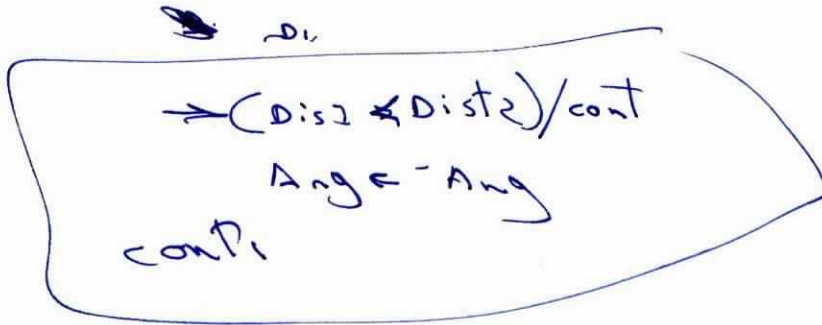 Di,
→(Dis1 ≤ Dist2)/cont
Ang ← -Ang
cont: